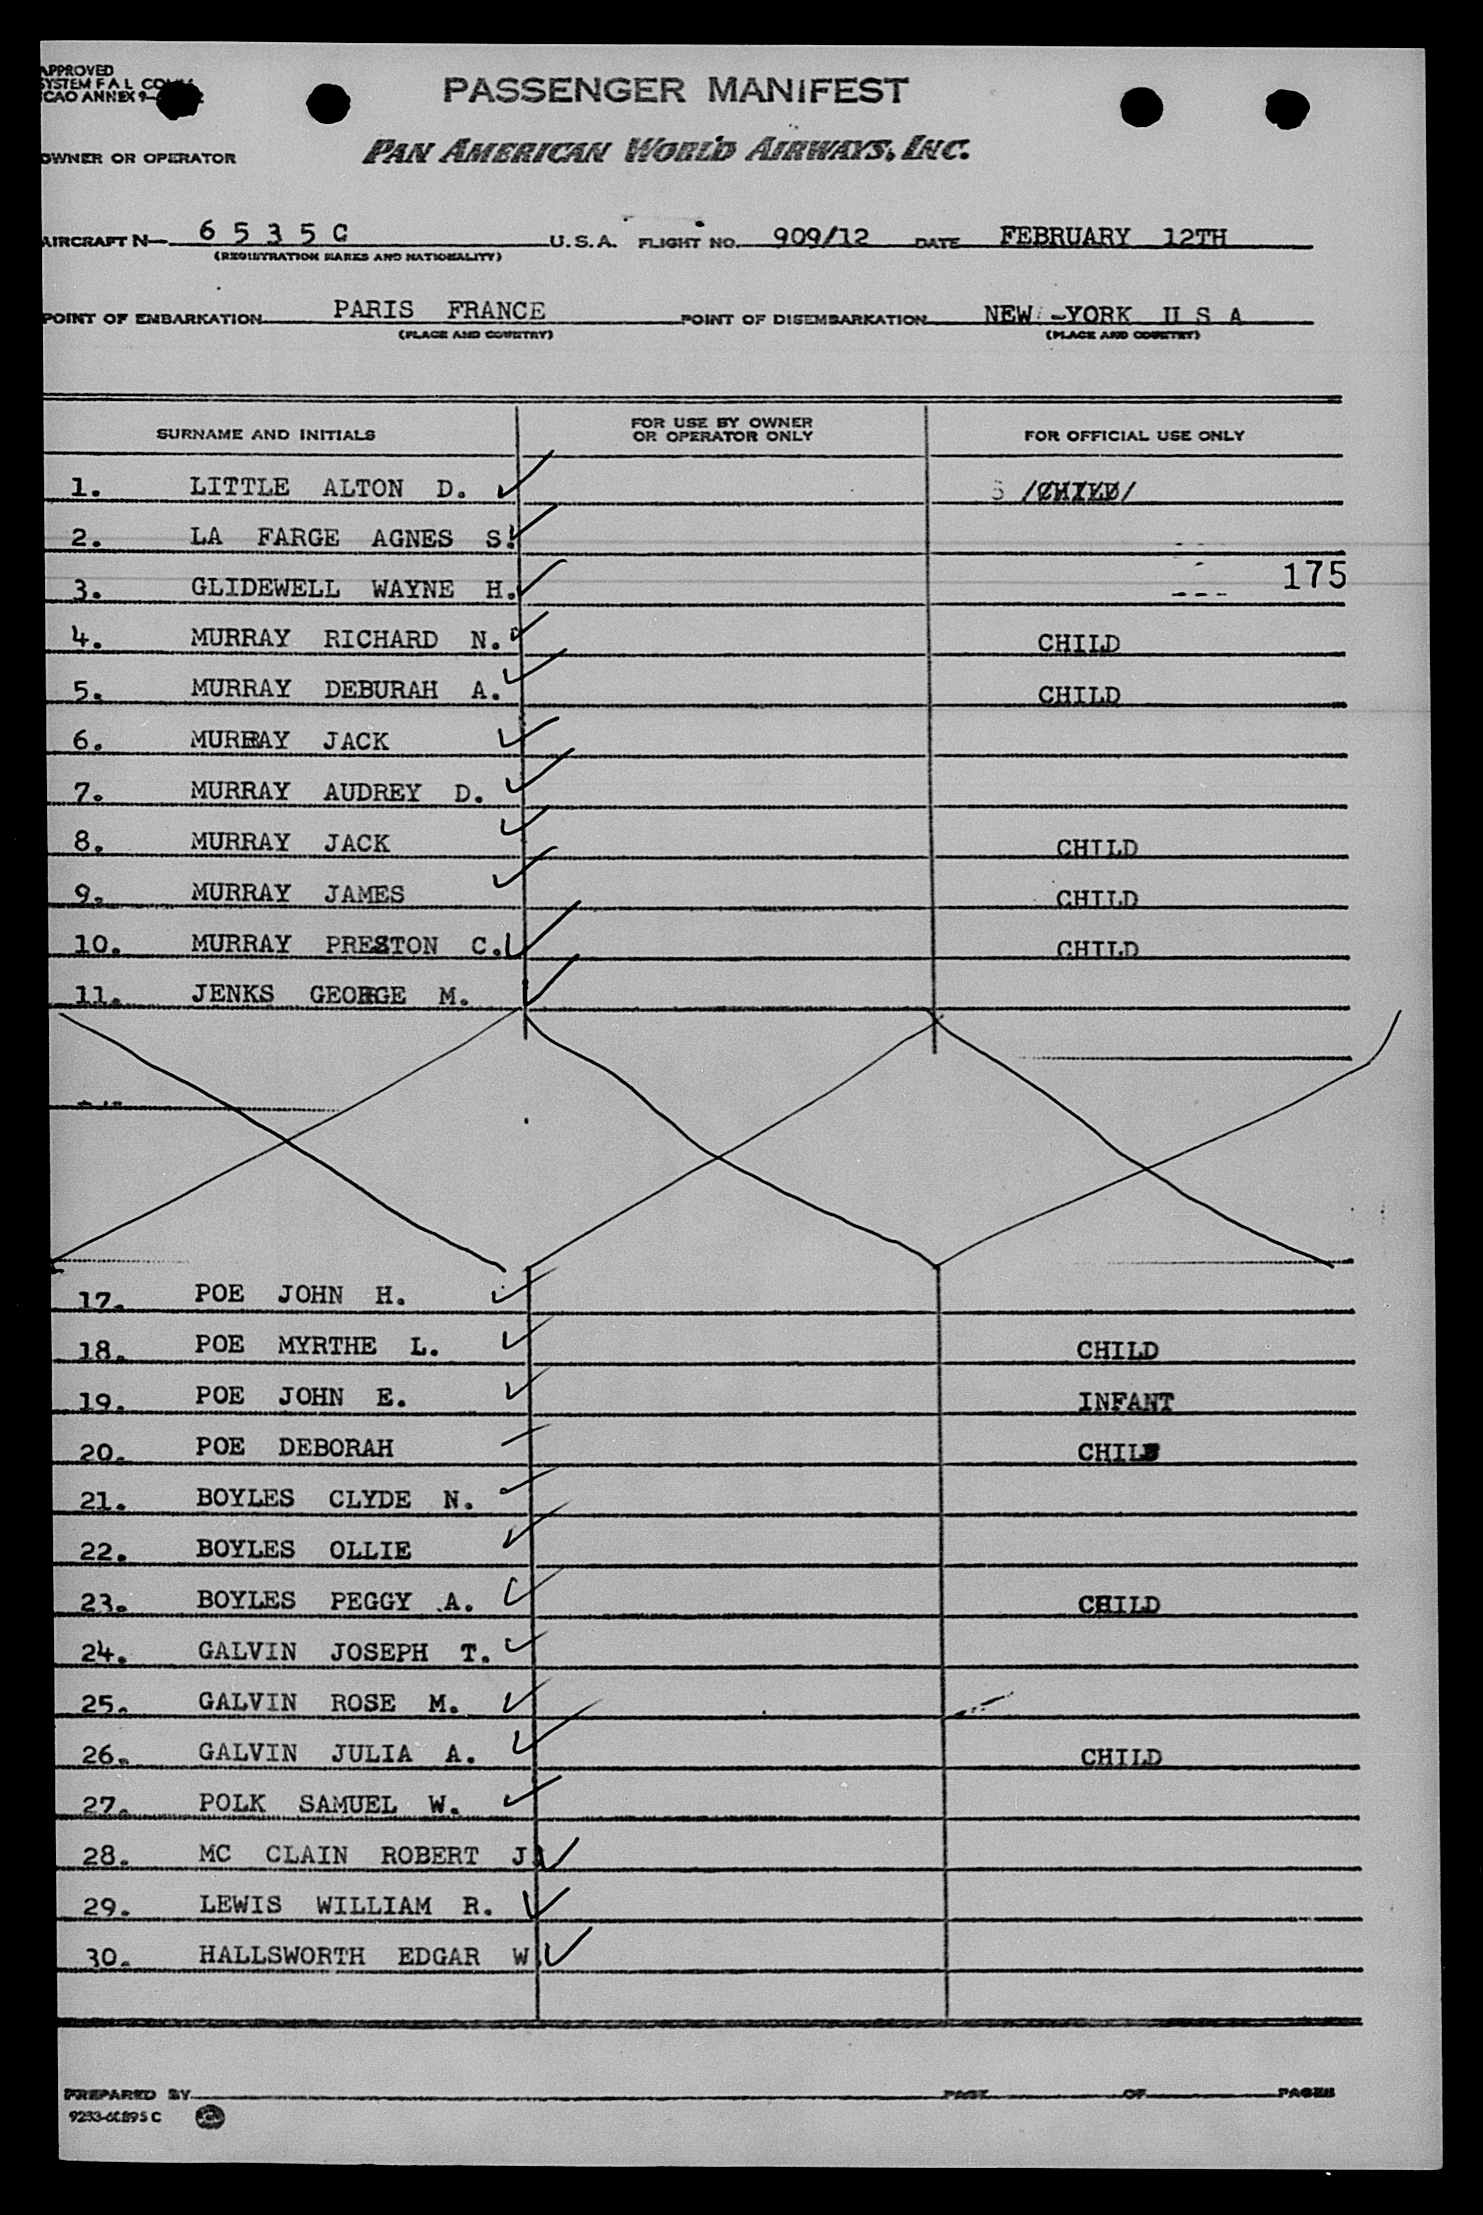 APPROVED
SYSTEM F A L
ICAO ANNEX 9
PASSENGER MANIFEST
OWNER OR OPERATOR PAN AMERICAN WORLD AIRWAYS, INC.
AIRCRAFT N— 6 5 3 5 C U.S.A. FLIGHT NO. 909/12 DATE FEBRUARY 12TH
(REGISTRATION MARKS AND NATIONALITY)
POINT OF EMBARKATION PARIS FRANCE POINT OF DISEMBARKATION NEW -YORK U S A
(PLACE AND COUNTRY) (PLACE AND COUNTRY)
SURNAME AND INITIALS FOR USE BY OWNER OR OPERATOR ONLY FOR OFFICIAL USE ONLY
1. LITTLE ALTON D. /CHILD/
2. LA FARGE AGNES S.
175
3. GLIDEWELL WAYNE H.
4. MURRAY RICHARD N. CHILD
5. MURRAY DEBURAH A. CHILD
6. MURRAY JACK
7. MURRAY AUDREY D.
8. MURRAY JACK CHILD
9. MURRAY JAMES CHILD
10. MURRAY PRESTON C. CHILD
11. JENKS GEORGE M.
17. POE JOHN H.
18. POE MYRTHE L. CHILD
19. POE JOHN E. INFANT
20. POE DEBORAH CHILD
21. BOYLES CLYDE N.
22. BOYLES OLLIE
23. BOYLES PEGGY A. CHILD
24. GALVIN JOSEPH T.
25. GALVIN ROSE M.
26. GALVIN JULIA A. CHILD
27. POLK SAMUEL W.
28. MC CLAIN ROBERT J
29. LEWIS WILLIAM R.
30. HALLSWORTH EDGAR W
PREPARED BY PAGE OF PAGES